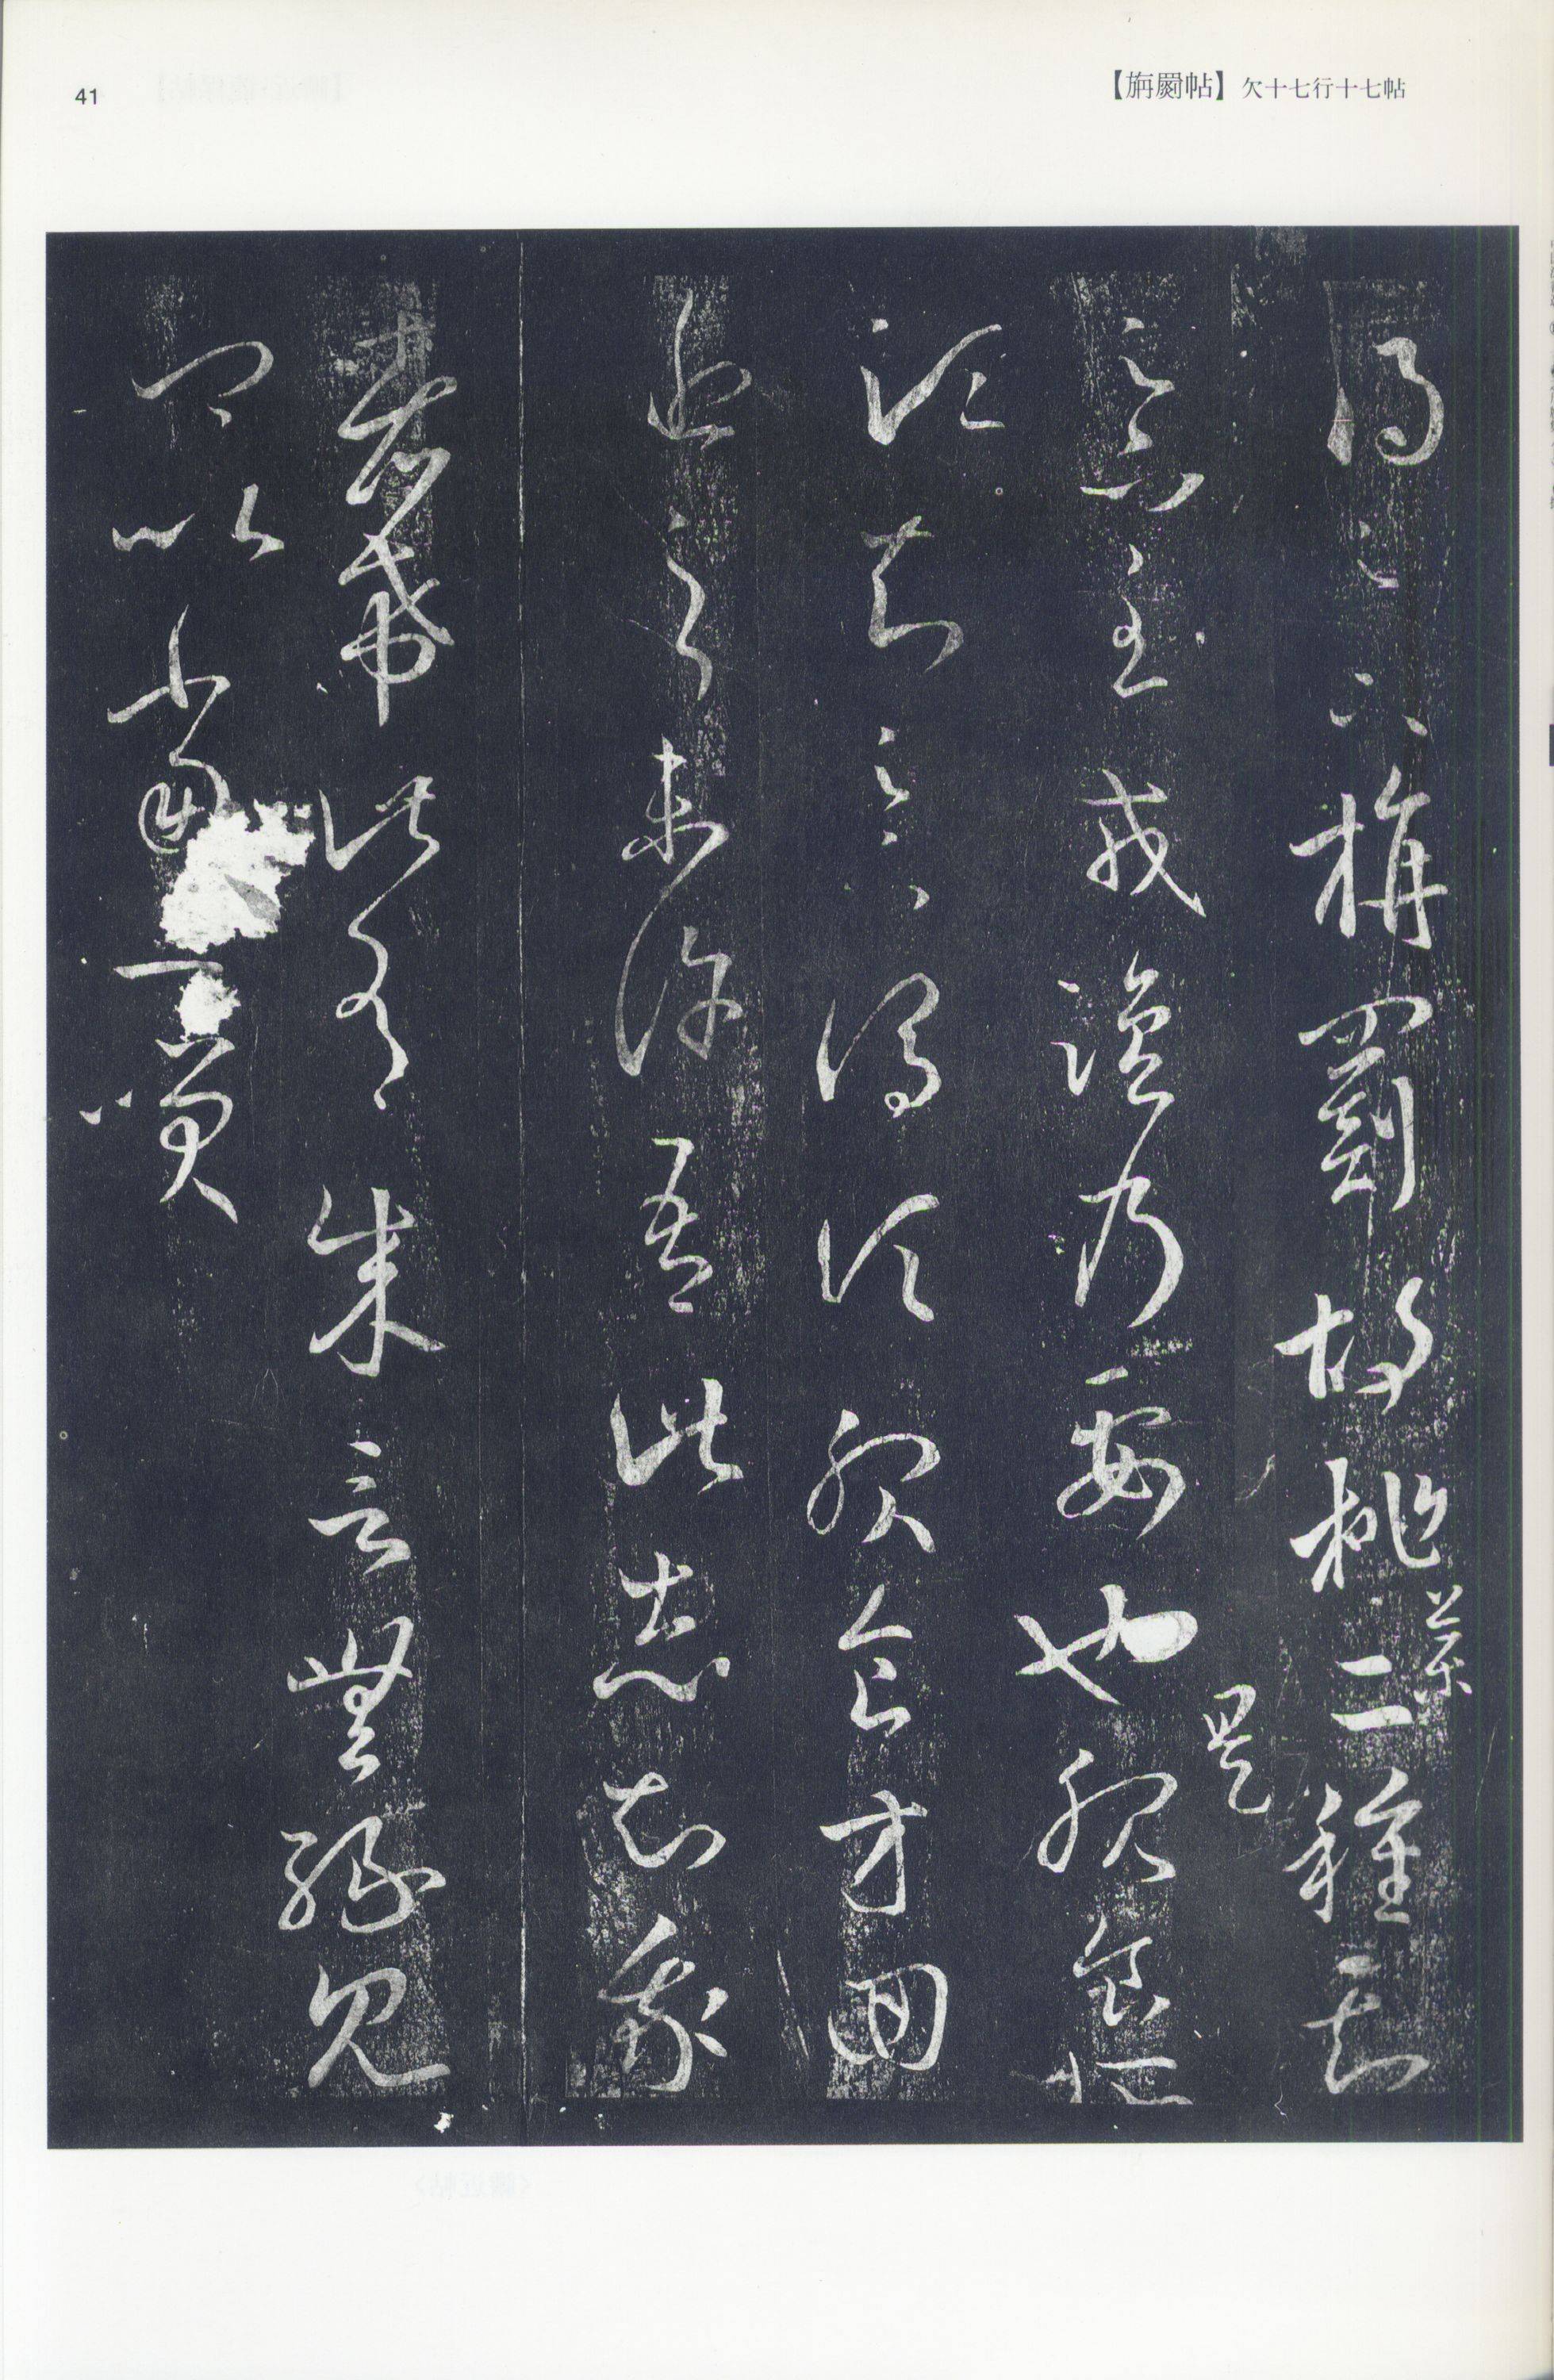 【旃罽帖】欠十七行十七帖
41
得足下旃罽胡桃藥二種知
足下至戎鹽乃要也是服食所
須知足下謂須服食方回
近之未許吾此志知我
者希此有成言無緣見
卿以當一笑